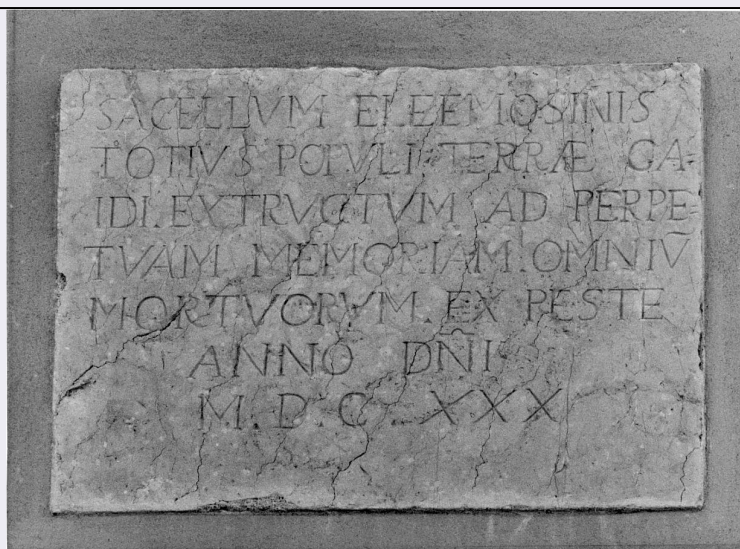 SACELLVM ELEEMOSINIS
TOTIVS POPVLI TERRÆ GA-
IDI. EXTRVCTVM AD PERPE-
TVAM MEMORIAM OMNIV̄
MORTVORVM. EX PESTE
ANNO DN̄I
M. D. C. XXX